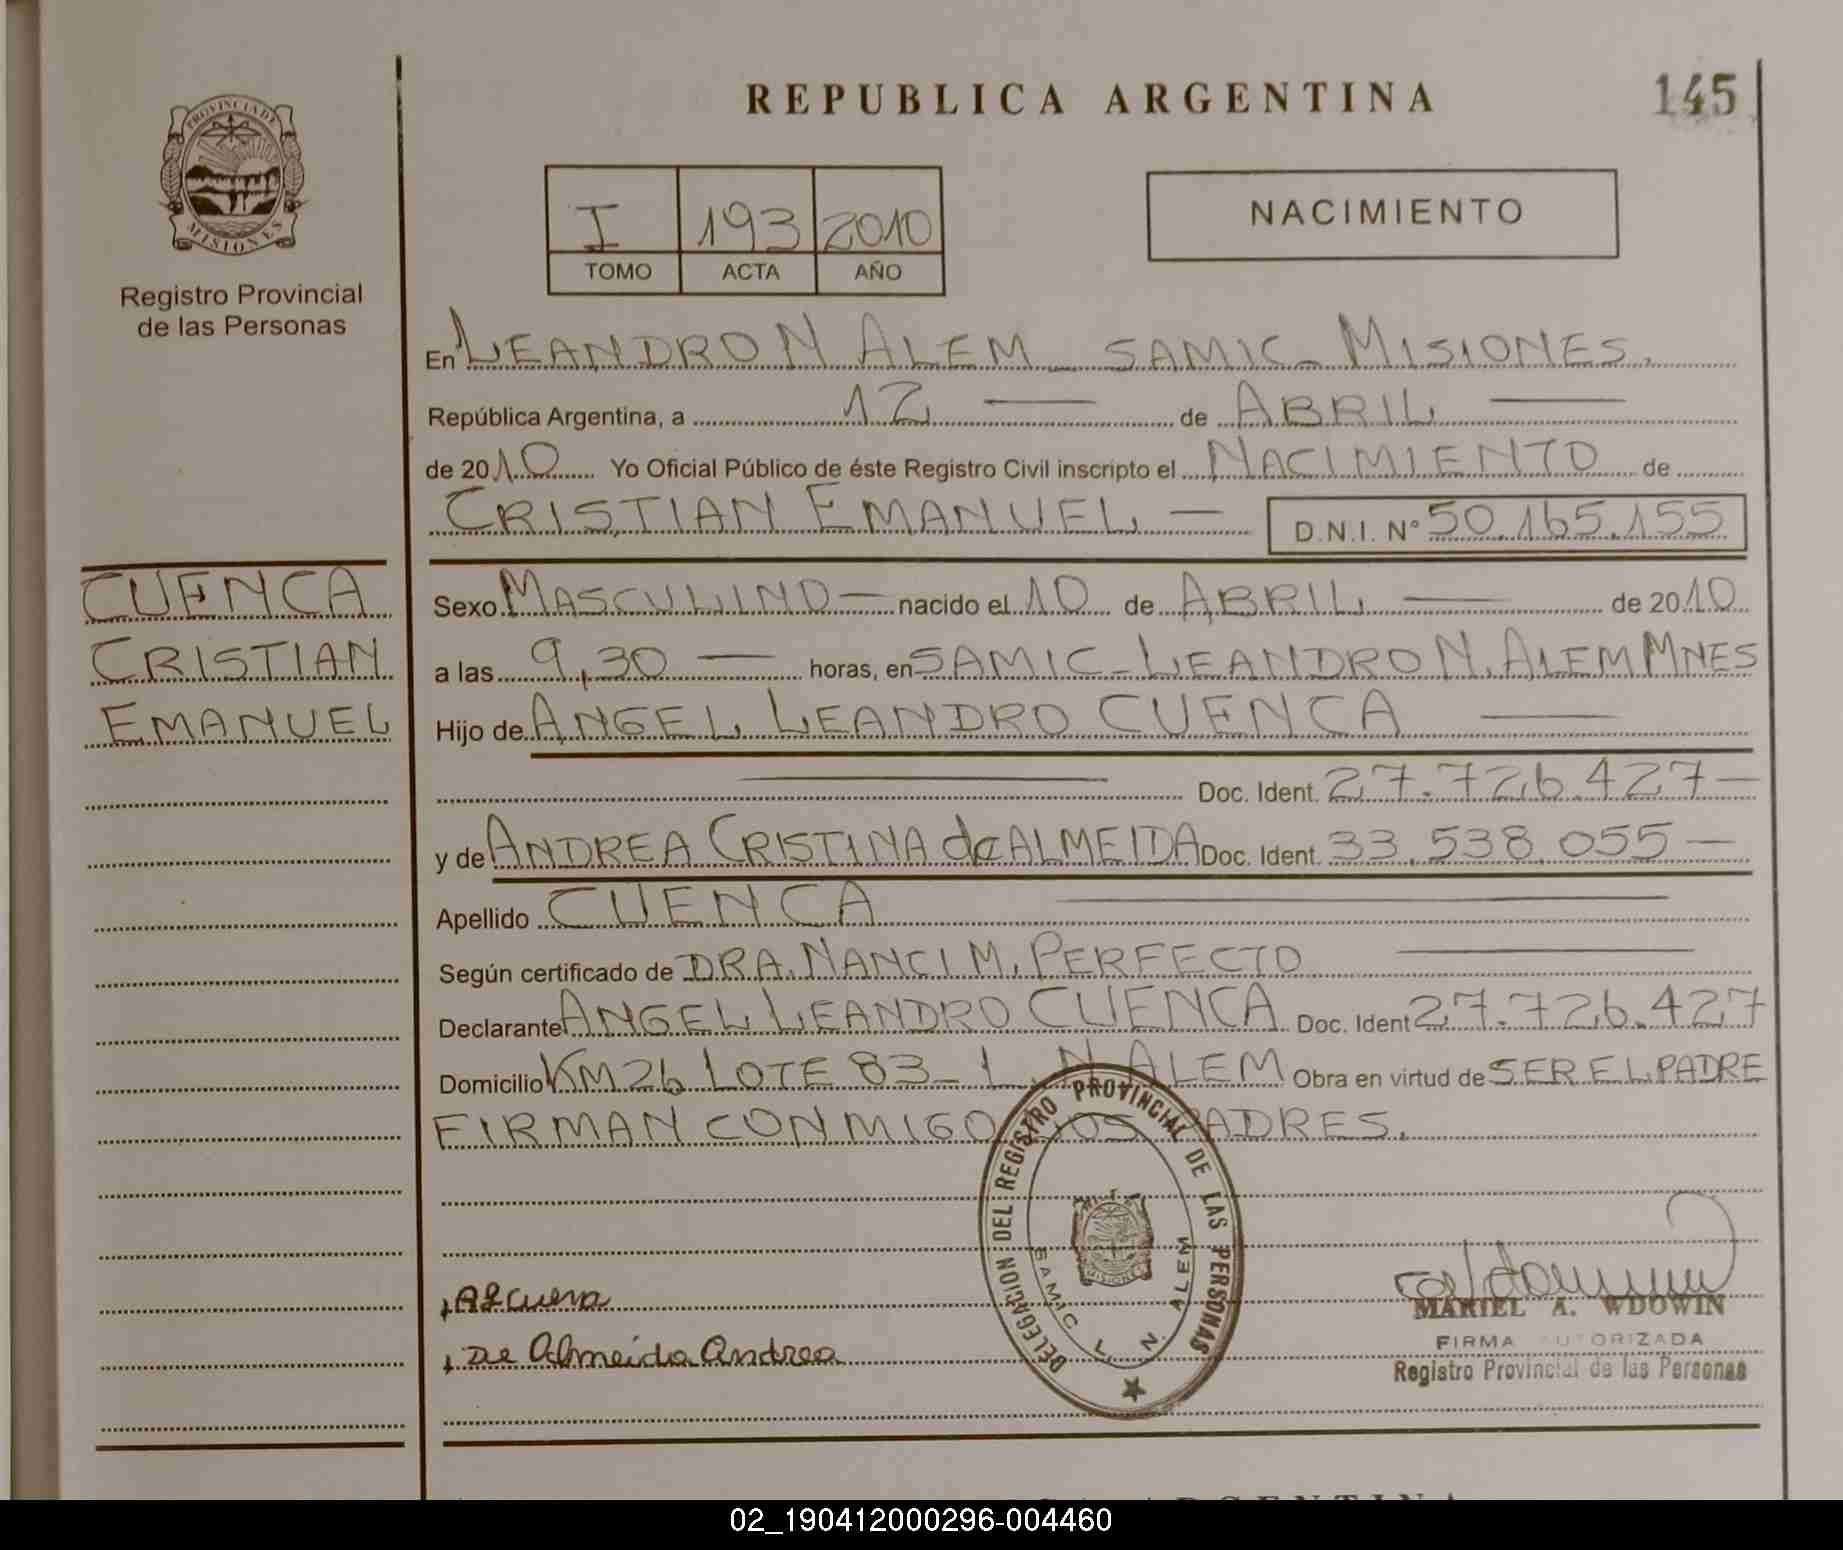 REPUBLICA ARGENTINA
145
PROVINCIA DE
MISIONES
Registro Provincial
de las Personas
I 193 2010
TOMO ACTA AÑO
NACIMIENTO
En LEANDRO N ALEM - SAMIC - MISIONES.
República Argentina, a 12 — de ABRIL —
de 2010 Yo Oficial Público de éste Registro Civil inscripto el NACIMIENTO de
CRISTIAN EMANUEL — D.N.I. N° 50.165.155
CUENCA
CRISTIAN
EMANUEL
Sexo MASCULINO — nacido el 10 de ABRIL — de 2010
a las 9,30 — horas, en SAMIC - LEANDRO N. ALEM MNES
Hijo de ANGEL LEANDRO CUENCA —
— Doc. Ident. 27.726.427 —
y de ANDREA CRISTINA de ALMEIDA Doc. Ident. 33.538.055 —
Apellido CUENCA —
Según certificado de DRA. NANCI M. PERFECTO —
Declarante ANGEL LEANDRO CUENCA Doc. Ident 27.726.427
Domicilio KM 26 LOTE 83 - L. N. ALEM Obra en virtud de SER EL PADRE
FIRMAN CONMIGO LOS PADRES.
DELEGACION DEL REGISTRO PROVINCIAL DE LAS PERSONAS
SAMIC L. N. ALEM
MISIONES
De Almeida Andrea
MARIEL A. WDOWIN
FIRMA AUTORIZADA
Registro Provincial de las Personas
02_190412000296-004460